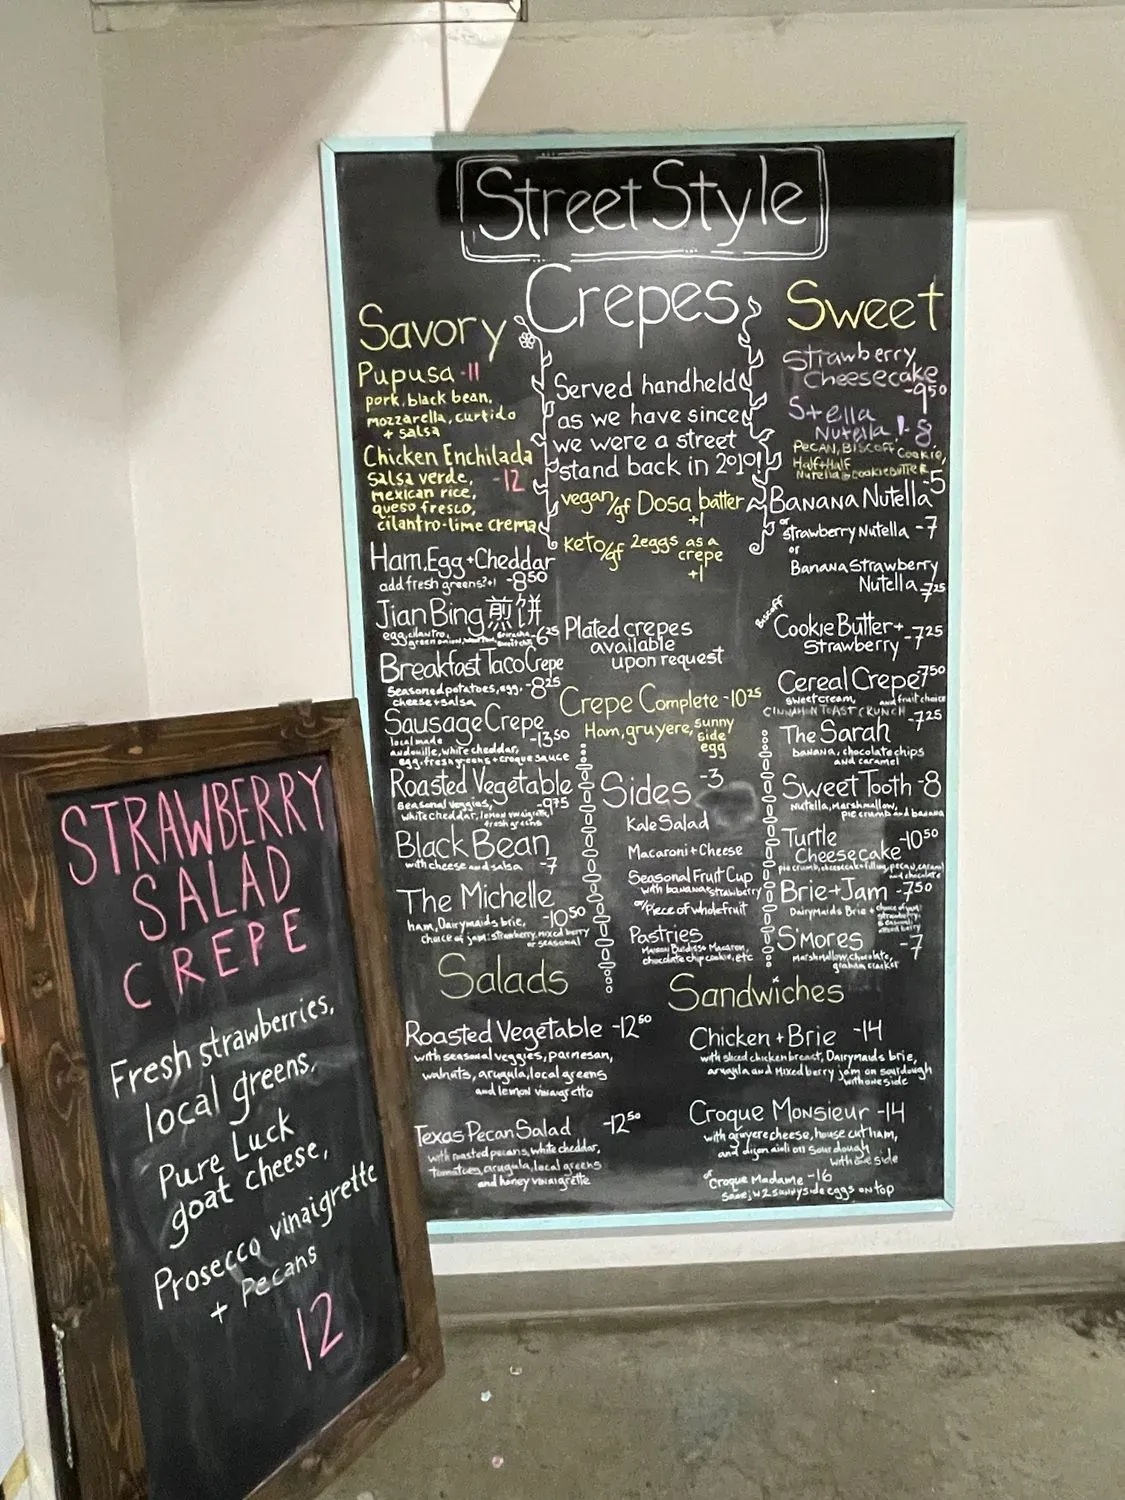 Street Style
Crepes
Savory
Pupusa -11
pork, black bean,
mozzarella, curtido
+ salsa
Chicken Enchilada
salsa verde, -12
mexican rice,
queso fresco,
cilantro-lime crema
Ham, Egg + Cheddar
add fresh greens? +1 -8.50
Jian Bing 煎饼
egg, cilantro,
green onion, wonton, sriracha, -6.25
Breakfast Taco Crepe
seasoned potatoes, egg, -8.25
cheese + salsa
Sausage Crepe
local made -13.50
andouille, white cheddar,
egg, fresh greens + croque sauce
Roasted Vegetable
seasonal veggies, -9.75
white cheddar, lemon vinaigrette,
fresh greens
Black Bean
with cheese and salsa -7
The Michelle
ham, Dairymaids brie, -10.50
choice of jam: strawberry, mixed berry
or seasonal
Served handheld
as we have since
we were a street
stand back in 2010!
vegan/gf Dosa batter
+1
keto/gf 2 eggs as a
crepe
+1
Plated crepes
available
upon request
Crepe Complete -10.25
Ham, gruyere, sunny
side
egg
Sides -3
Kale Salad
Macaroni + Cheese
Seasonal Fruit Cup
with bananas, strawberry
or Piece of whole fruit
Pastries
Maison Burdisso Macaron,
chocolate chip cookie, etc
Sweet
Strawberry
Cheesecake
-9.50
Stella
Nutella !-8
Pecan, Biscoff Cookie,
Half+Half
Nutella & Cookie Butter
Banana Nutella -5
or strawberry Nutella -7
or
Banana Strawberry
Nutella -7.25
Biscoff
Cookie Butter +
Strawberry -7.25
Cereal Crepe 7.50
sweet cream, and fruit choice
Cinnamon Toast Crunch
The Sarah -7.25
banana, chocolate chips
and caramel
Sweet Tooth -8
Nutella, Marshmallow,
pie crumb and banana
Turtle
Cheesecake -10.50
pie crumb, cheesecake filling, pecan, caramel
and chocolate
Brie + Jam -7.50
Dairymaids Brie + choice of jam:
strawberry,
seasonal
mixed berry
S'mores -7
marshmallow, chocolate,
graham cracker
Salads
Roasted Vegetable -12.50
with seasonal veggies, parmesan,
walnuts, arugula, local greens
and lemon vinaigrette
Texas Pecan Salad -12.50
with roasted pecans, white cheddar,
tomatoes, arugula, local greens
and honey vinaigrette
Sandwiches
Chicken + Brie -14
with sliced chicken breast, Dairymaids brie,
arugula and Mixed berry jam on sourdough
with one side
Croque Monsieur -14
with gruyere cheese, house cut ham,
and dijon aioli on sourdough
with one side
or Croque Madame -16
same, w 2 sunny side eggs on top
STRAWBERRY
SALAD
CREPE
Fresh strawberries,
local greens,
Pure Luck
goat cheese,
Prosecco vinaigrette
+ Pecans
12